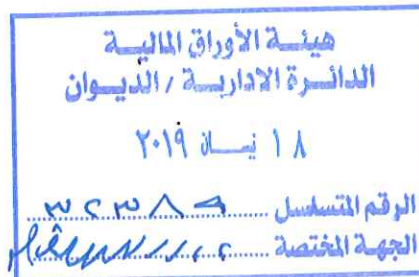 هيئة الأوراق المالية
الدائرة الادارية / الديوان
١٨ نيسان ٢٠١٩
الرقم المتسلسل ٣٢٣٨٩
الجهة المختصة